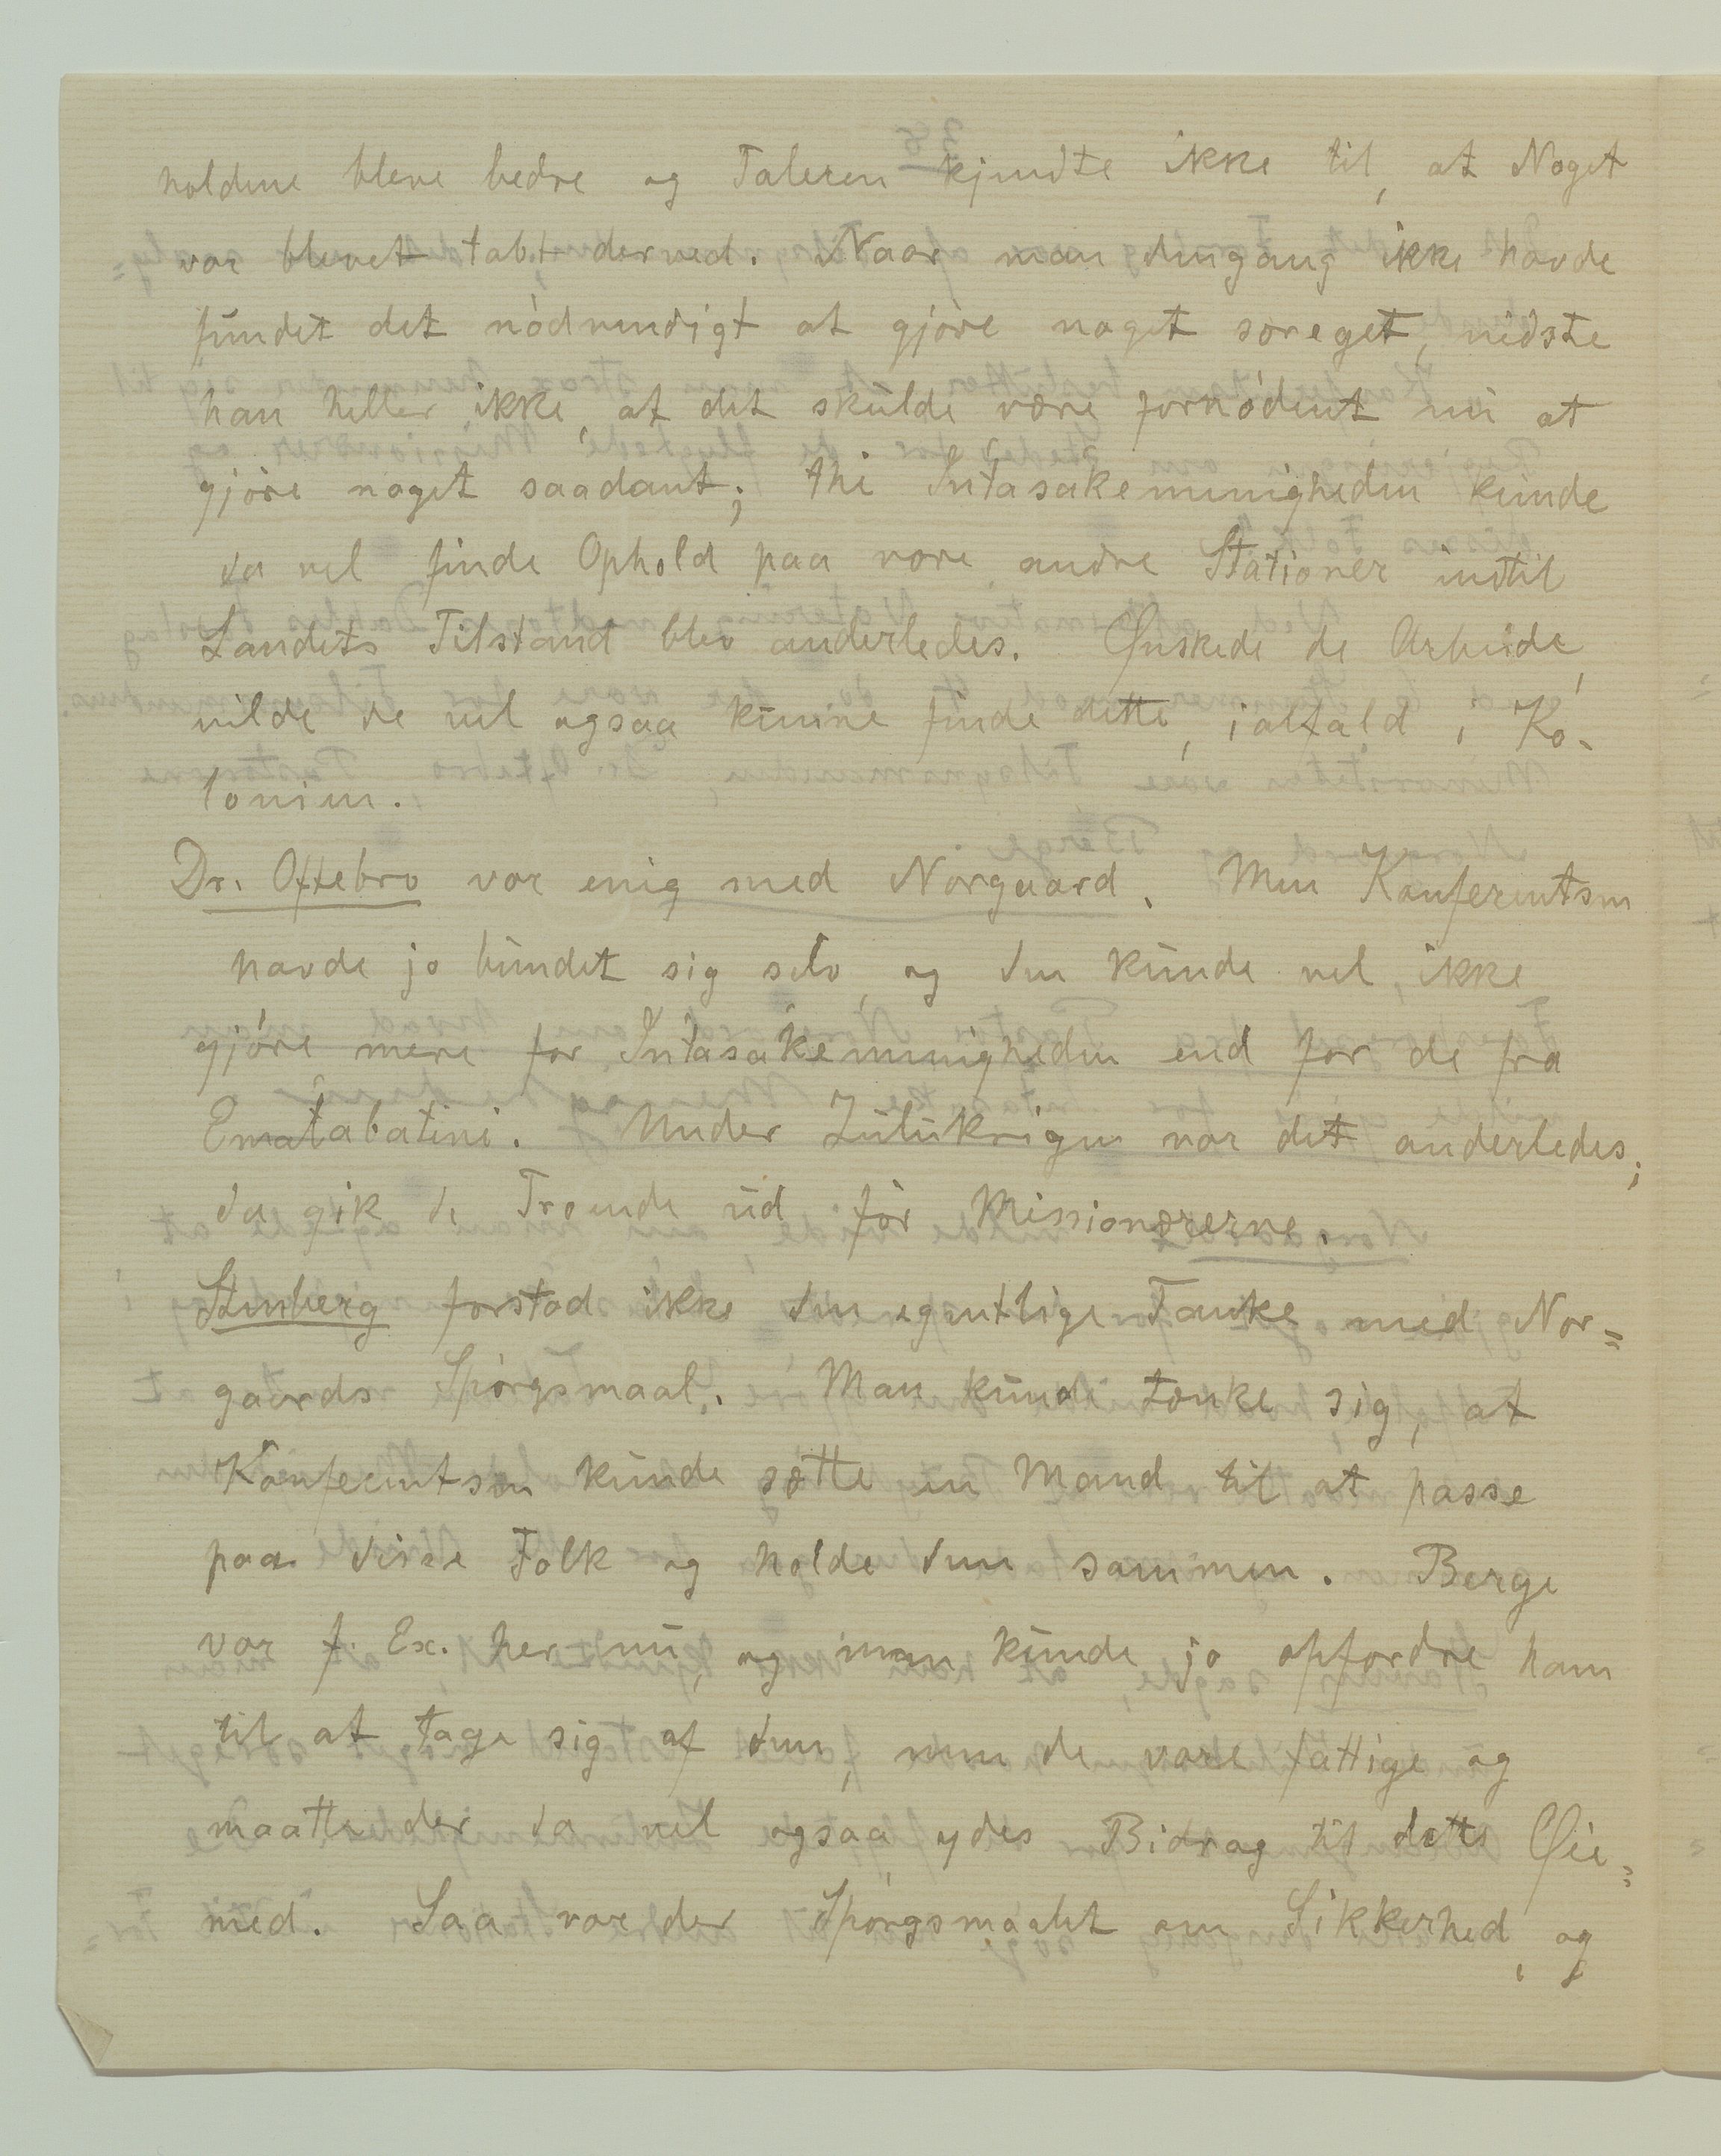 holdene bleve bedre og Taleren kjendte ikke til, at Noget
var blevet tabt derved. Naar man dengang ikke havde
fundet det nødvendigt at gjøre noget særeget, vidste
han heller ikke, at det skulde være fornødent nu at
gjøre noget saadant; thi Intasakemenigheden kunde
da vel finde Ophold paa vore andre Stationer indtil
Landets Tilstand blev anderledes. Ønskede de Arbeide,
vilde de vel ogsaa kunne finde dette, ialfald i Ko-
lonien.
Dr. Oftebro var enig med Norgaard. Men Konferentsen
havde jo bundet sig selv, og den kunde vel ikke
gjøre mere for Intasakemenigheden end for de fra
Ematabatini. Under Zulukrigen var det anderledes;
da gik de Troende ud før Missionærerne.
Stenberg forstod ikke den egentlige Tanke med Nor=
gaards Spørgsmaal. Man kunde tænke sig, at
Konferentsen kunde sætte en Mand til at passe
paa disse Folk og holde dem sammen. Berge
var f. Ex. her nu, og man kunde jo opfordre ham
til at tage sig af dem, men de vare fattige og
maatte der da vel ogsaa ydes Bidrag til dette Øie=
med. Saa var der Spørgsmaalet om Sikkerhed, og